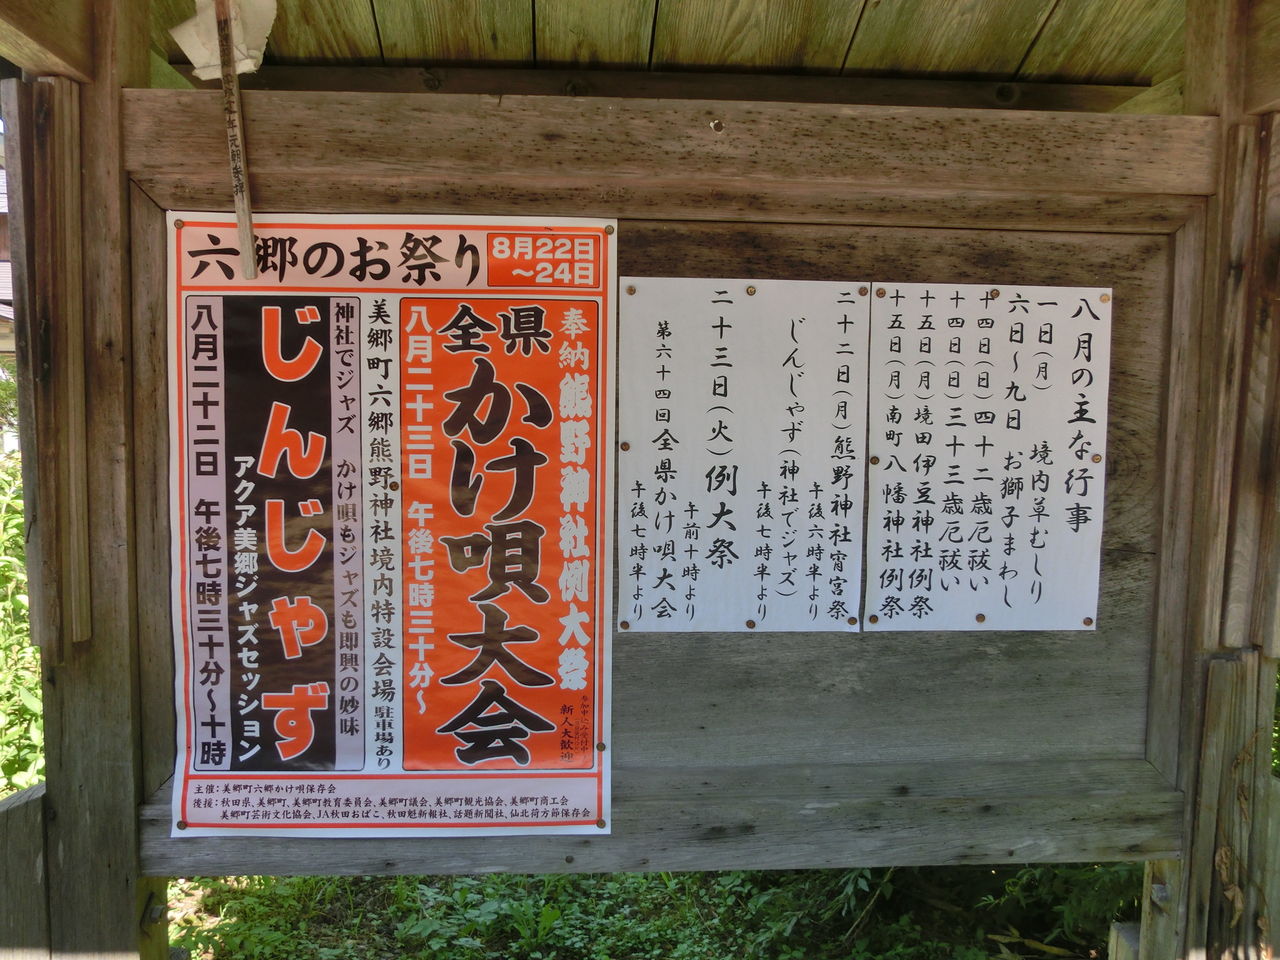 六郷のお祭り
8月22日
～24日
奉納 熊野神社例大祭
全県
かけ唄大会
新人大歓迎
八月二十三日 午後七時三十分～
美郷町六郷熊野神社境内特設会場 駐車場あり
神社でジャズ かけ唄もジャズも即興の妙味
じんじゃず
アクア美郷ジャズセッション
八月二十二日 午後七時三十分～十時
主催:美郷町六郷かけ唄保存会
後援:秋田県、美郷町、美郷町教育委員会、美郷町議会、美郷町観光協会、美郷町商工会
美郷町芸術文化協会、JA秋田おばこ、秋田魁新報社、話題新聞社、仙北荷方節保存会
八月の主な行事
一日(月) 境内草むしり
六日～九日 お獅子まわし
十四日(日)四十二歳厄祓い
十四日(日)三十三歳厄祓い
十五日(月)境田伊豆神社例祭
十五日(月)南町八幡神社例祭
二十二日(月)熊野神社宵宮祭
午後六時半より
じんじゃず(神社でジャズ)
午後七時半より
二十三日(火)例大祭
午前十時より
第六十四回全県かけ唄大会
午後七時半より